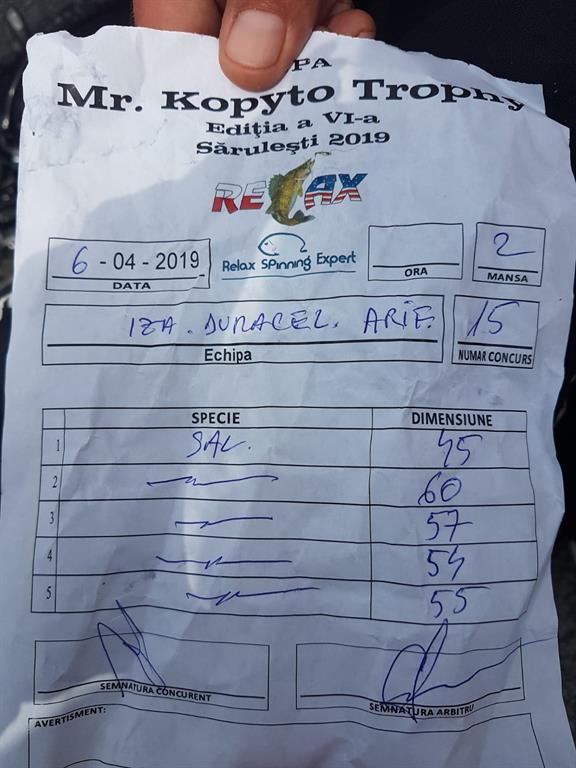 PA
Mr. Kopyto Trophy
Ediţia a VI-a
Săruleşti 2019
RELAX
6 - 04 - 2019
DATA
Relax Spinning Expert
ORA
2
MANSA
IZA. DURACEL. ARIE.
Echipa
15
NUMAR CONCURS
SPECIE DIMENSIUNE
1 SAL. 45
2 60
3 57
4 54
5 55
SEMNATURA CONCURENT
SEMNATURA ARBITRU
AVERTISMENT: